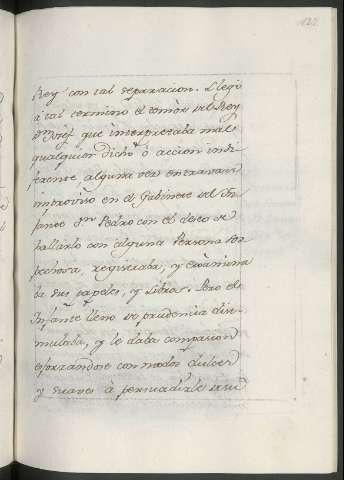 122
Rey con tal separacion. Llegó
a tal termino el temor del Rey
Dn Josef que interpretaba mal
qualquier dicho, ó accion indi
ferente, alguna vez entraba de
improviso en el Gabinete del In
fante Dn Pedro con el deseo de
hallarlo con alguna Persona sos
pechosa, registraba, y examina
ba sus papeles, y Libros. Pero el
Infante lleno de prudencia disi
mulaba, y le daba compasion
esforzandose con modos dulces
y suaves á persuadirle